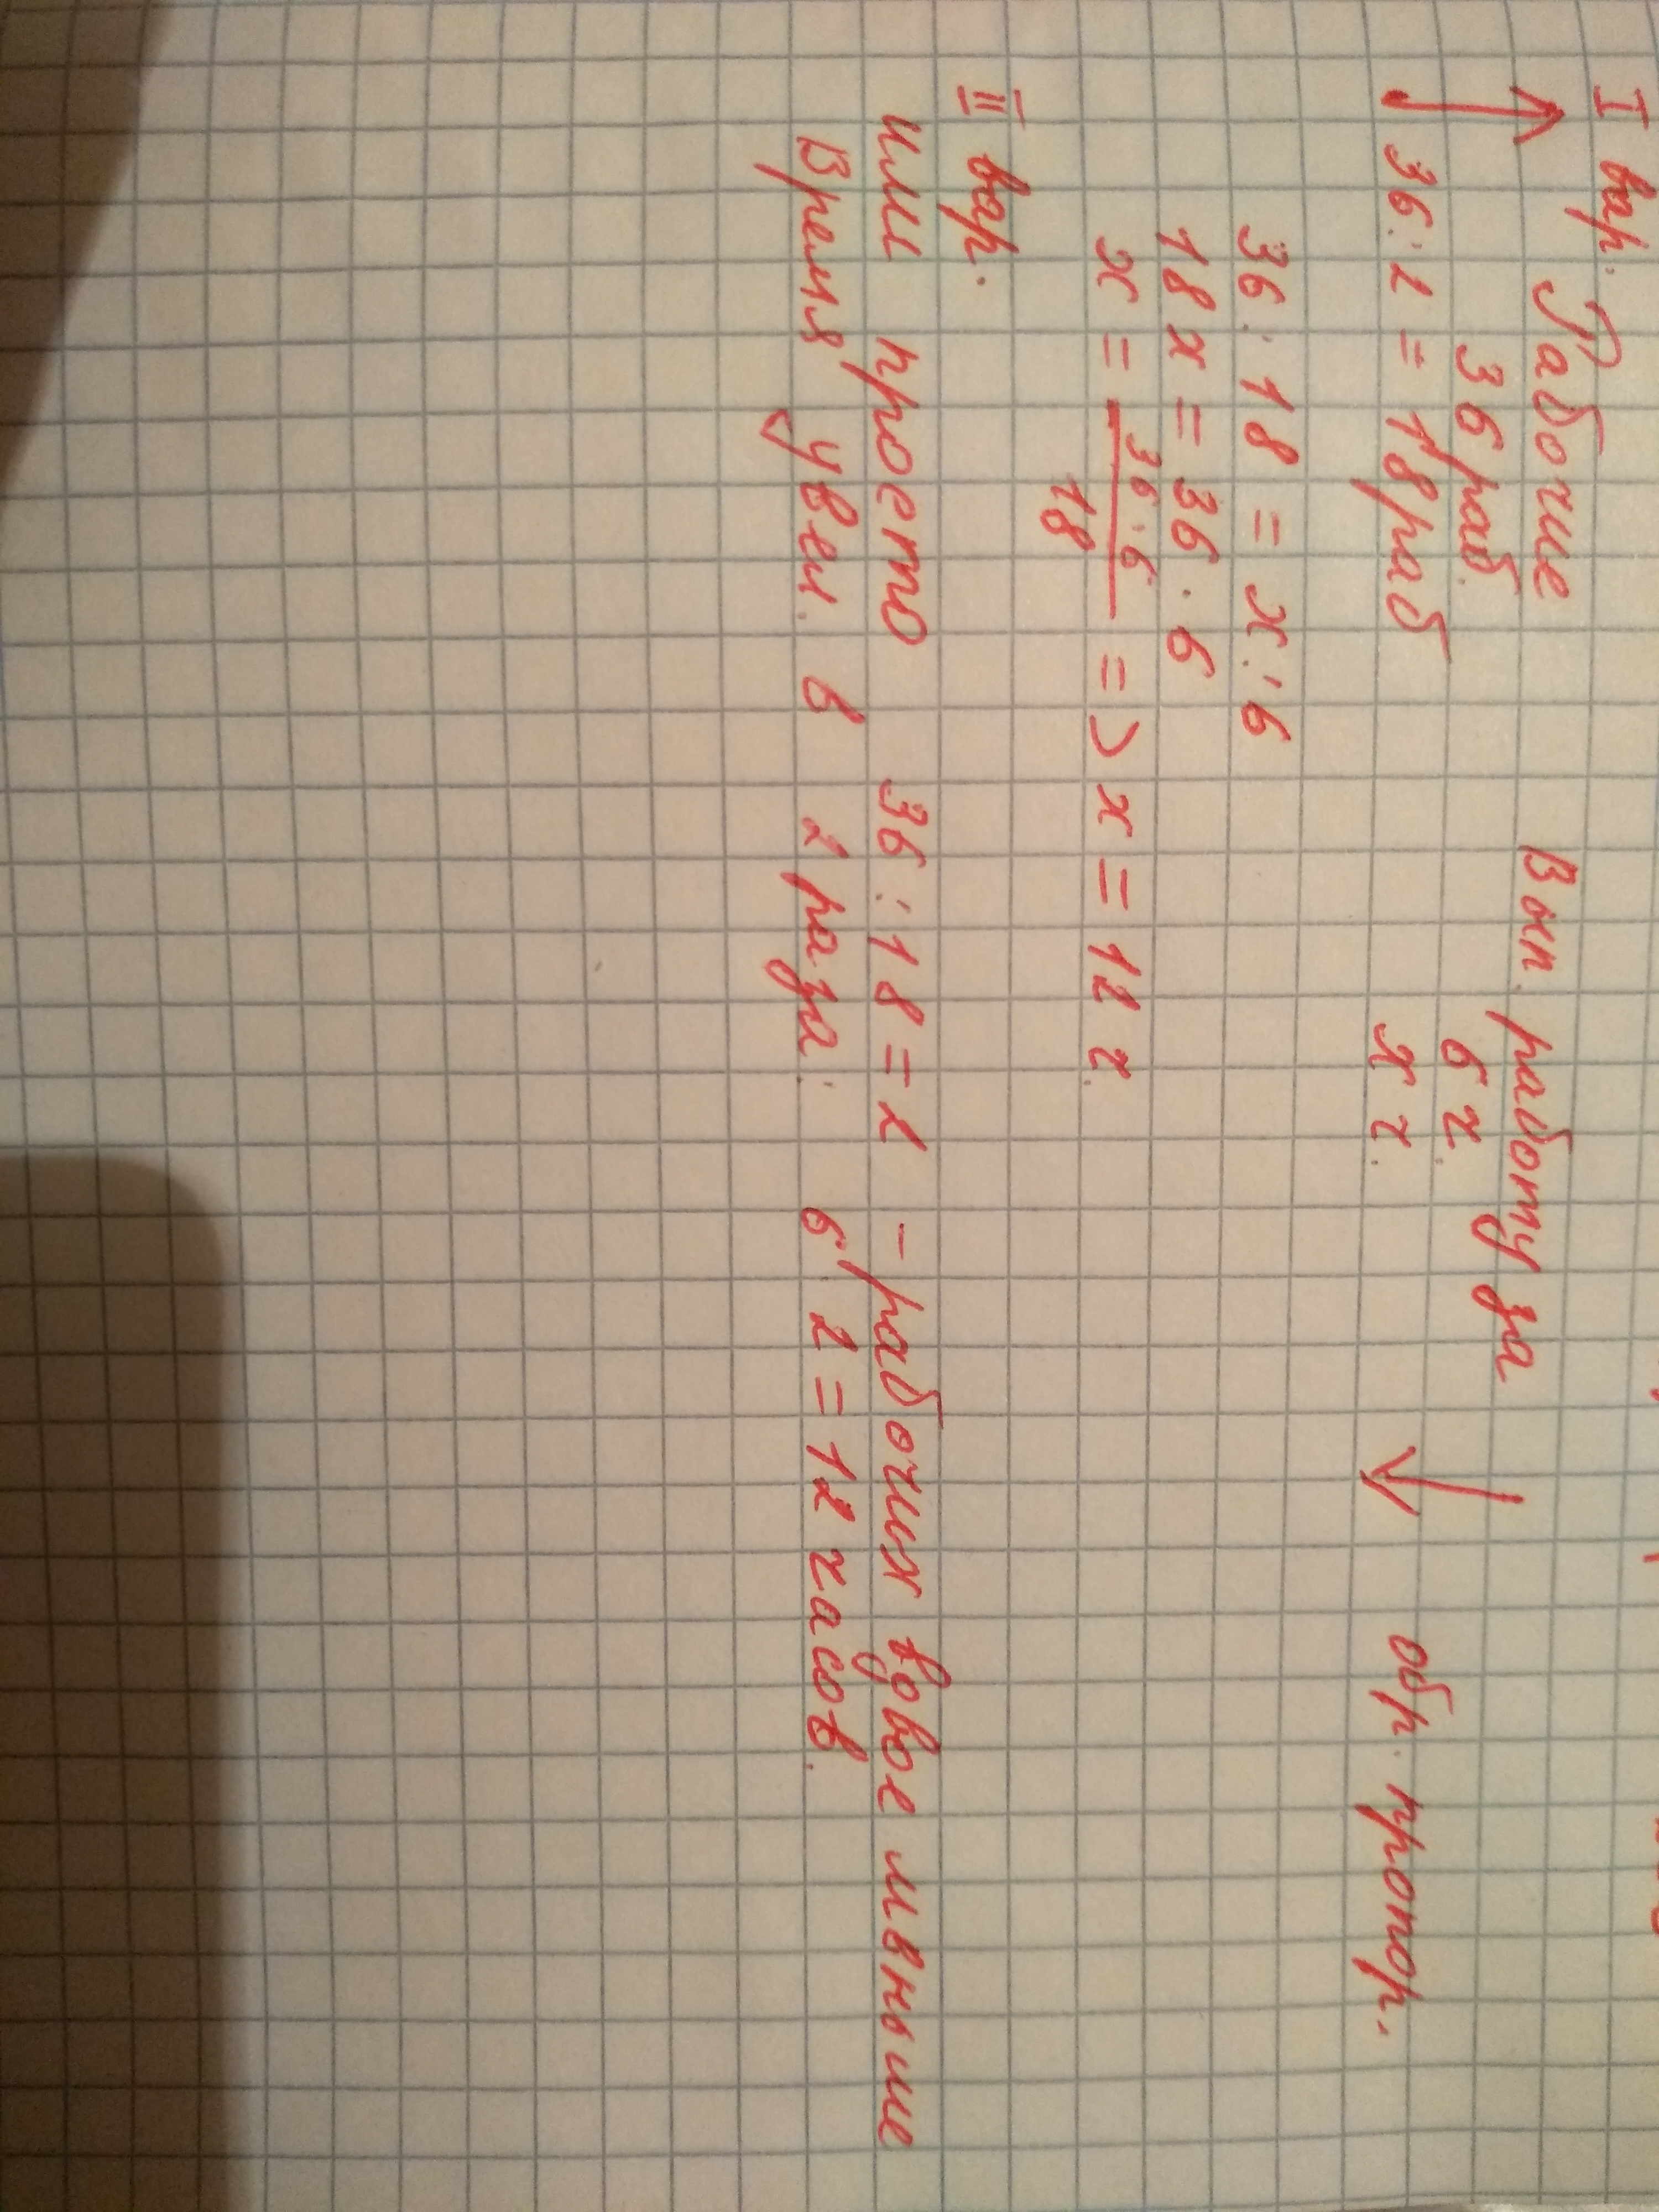 I вар. Рабочие Вып. работу за
36 раб. 6 ч.
36 : 2 = 18 раб х ч. обр. пропор.
36 : 18 = х : 6
18 х = 36 · 6
х = 36 · 6 / 18 => х = 12 ч.
II вар.
или просто 36 : 18 = 2 - рабочих вдвое меньше
Время увел. в 2 раза: 6 · 2 = 12 часов.